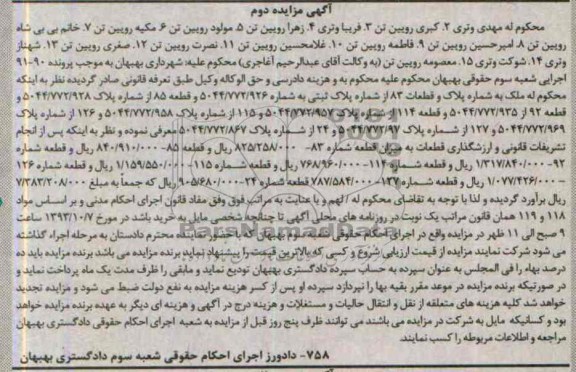 آگهی مزایده دوم
محکوم له مهدی وتری ۲. کبری رویین تن ۳. فریبا وتری ۴. زهرا رویین تن ۵. مولود رویین تن ۶. مکیه رویین تن ۷. خانم بی بی شاه
رویین تن ۸. امیرحسین رویین تن ۹. فاطمه رویین تن ۱۰. غلامحسین رویین تن ۱۱. نصرت رویین تن ۱۲. صغری رویین تن ۱۳. شهناز
وتری ۱۴. شوکت وتری ۱۵. معصومه رویین تن (به وکالت آقای عبدالرحیم آغاجری) محکوم علیه: شهرداری بهبهان به موجب پرونده ۹۰-۹۱
اجرایی شعبه سوم حقوقی بهبهان محکوم علیه محکوم به و هزینه دادرسی و حق الوکاله وکیل طبق تعرفه قانونی صادر گردیده نظر به اینکه
محکوم له ملک به شماره پلاک و قطعات ۸۳ از شماره پلاک ثبتی به شماره ۵۰۴۴/۷۷۲/۹۲۶ و قطعه ۸۵ از شماره پلاک ۵۰۴۴/۷۷۲/۹۲۸ و
قطعه ۹۲ از ۵۰۴۴/۷۷۲/۹۳۵ و قطعه ۱۱۴ از شماره پلاک ۵۰۴۴/۷۷۲/۹۵۷ و ۱۱۵ از شماره پلاک ۵۰۴۴/۷۷۲/۹۵۸ و ۱۲۶ از شماره پلاک
۵۰۴۴/۷۷۲/۹۶۹ و ۱۲۷ از شماره پلاک ۵۰۴۴/۷۷۲/۹۷ و ۲۴ از شماره پلاک ۵۰۴۴/۷۷۲/۸۶۷ معرفی نموده و نظر به اینکه پس از انجام
تشریفات قانونی و ارزشگذاری قطعات به میزان قطعه شماره ۸۳- ۸۲۵/۲۵۸/۰۰۰ ریال و قطعه ۸۵- ۸۴۰/۹۱۰/۰۰۰ ریال و قطعه شماره
۹۲- ۱/۳۱۷/۸۴۰/۰۰۰ ریال و قطعه شماره ۱۱۴- ۷۶۸/۹۶۰/۰۰۰ ریال و قطعه شماره ۱۱۵- ۱/۱۵۹/۵۵۰/۰۰۰ ریال و قطعه شماره ۱۲۶
۱/۰۷۷/۴۲۶/۰۰۰ ریال و قطعه شماره ۱۳۷- ۷۸۷/۵۸۴/۰۰۰ قطعه شماره ۲۴- ۹۰۵/۶۸۰/۰۰۰ ریال که جمعاً به مبلغ ۷/۳۸۳/۲۰۸/۰۰۰
ریال برآورد گردیده و لذا با توجه به تقاضای محکوم له / لهم و با عنایت به مراتب فوق وفق مفاد قانون اجرای احکام مدنی و بر اساس مواد
۱۱۸ و ۱۱۹ همان قانون مراتب یک نوبت در روزنامه های محلی آگهی تا چنانچه شخصی مایل به خرید باشد در مورخ ۱۳۹۳/۱۰/۷ ساعت
۹ صبح الی ۱۱ ظهر در مزایده واقع در اجرای احکام حقوقی شعبه سوم بهبهان که با حضور نماینده محترم دادستان به مرحله اجراء گذاشته
می شود شرکت نمایند مزایده از قیمت ارزیابی شروع و کسی که بالاترین قیمت را پیشنهاد نماید برنده مزایده می باشد برنده مزایده باید ده
درصد بهاء را فی المجلس به عنوان سپرده به حساب سپرده دادگستری بهبهان تودیع نماید و مابقی را ظرف مدت یک ماه پرداخت نماید و
در صورتیکه برنده مزایده در موعد مقرر بقیه بها را نپردازد سپرده او پس از کسر هزینه مزایده به نفع دولت ضبط می شود و مزایده تجدید
خواهد شد کلیه هزینه های متعلقه از نقل و انتقال حالیات و مستغلات و هزینه درج در آگهی و هزینه ای دیگر به عهده برنده مزایده خواهد
بود و کسانیکه مایل به شرکت در مزایده می باشند می توانند ظرف پنج روز قبل از مزایده به شعبه اجرای احکام حقوقی دادگستری بهبهان
مراجعه و اطلاعات مربوطه را کسب نمایند.
۷۵۸- دادورز اجرای احکام حقوقی شعبه سوم دادگستری بهبهان